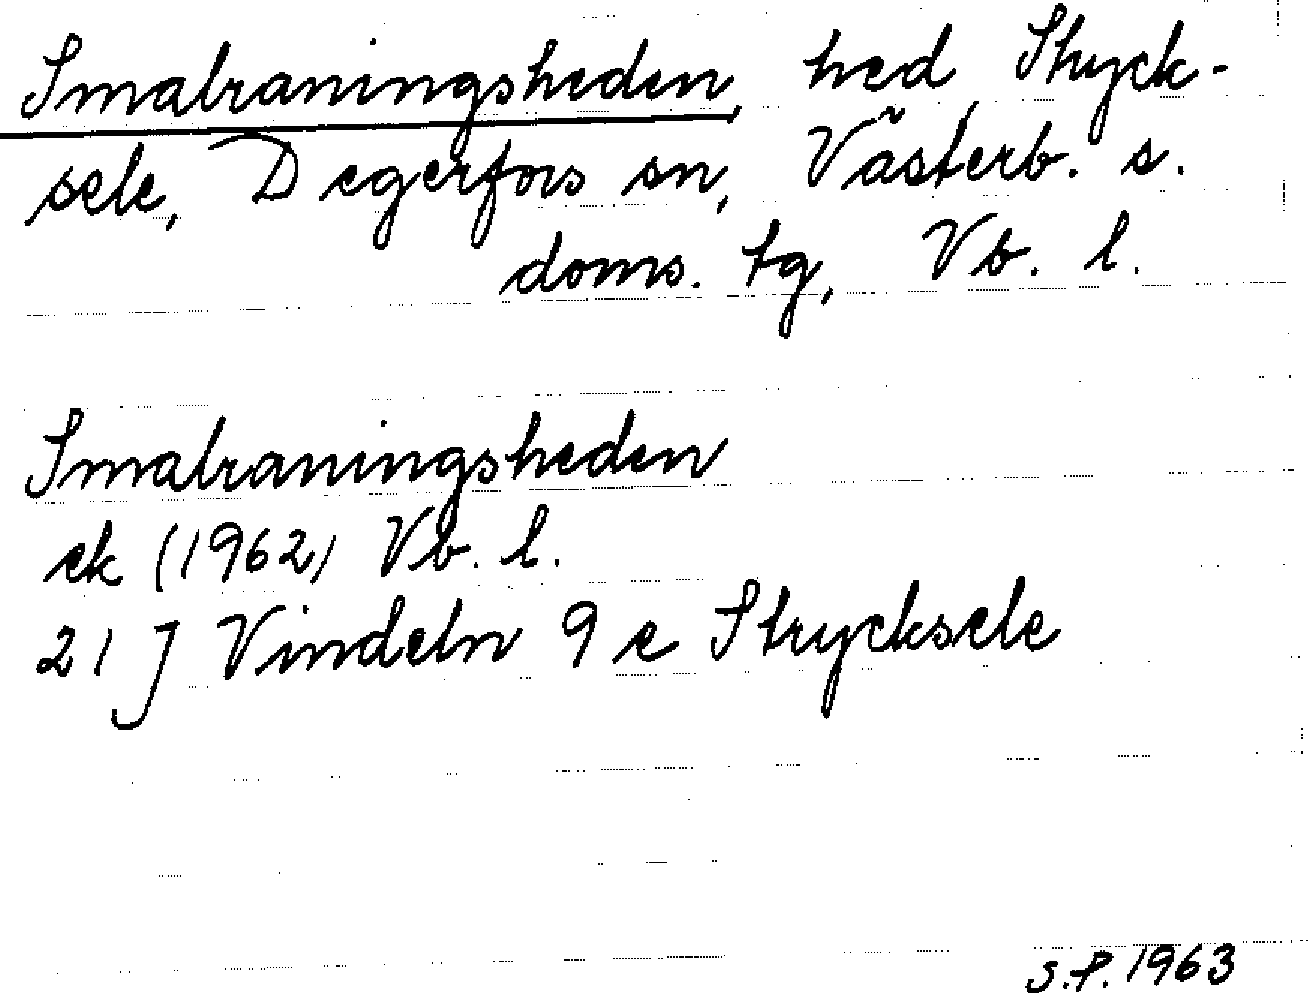 Smalraningsheden, hed, Stryck-
sele, Degerfors sn, Västerb. s.
doms. tg, Vb. l.
Smalraningsheden
ek (1962) Vb. l.
21 J Vindeln 9 e Strycksele
S.P. 1963